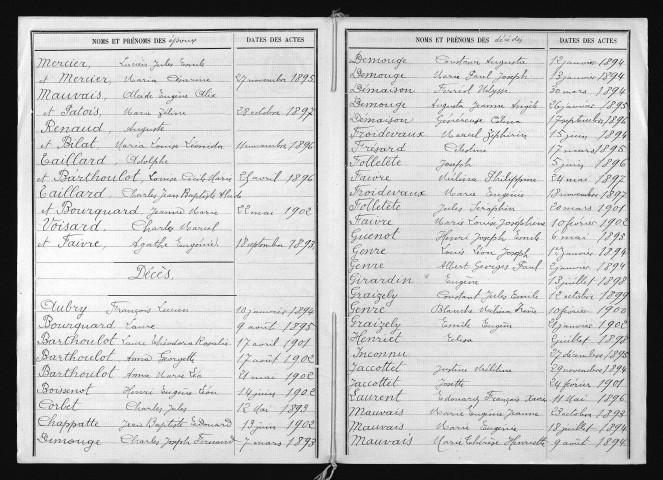 NOMS ET PRÉNOMS DES époux DATES DES ACTES
Mercier, Lucien Jules Emile
et Mercier, Maria Maxime 27 novembre 1895
Mauvais, Alcide Eugène Alix
et Patois, Marie Zéline 28 octobre 1897
Renaud, Auguste
et Bilat, Maria Louise Léonida 11 novembre 1896
Taillard, Adolphe
et Barthoulot, Louise Marie 25 avril 1896
Taillard, Charles Jean Baptiste
et Bourquard, Jeanne Marie 22 mai 1902
Voisard, Charles Marcel
et Faivre, Agathe Eugénie 18 septembre 1893
Décès.
Aubry François Lucien 10 janvier 1894
Bourquard Laure 9 août 1895
Barthoulot Laure Théodora Rosalie 17 avril 1901
Barthoulot Anna Georgette 17 août 1902
Barthoulot Anna Marie Léa 21 mai 1902
Boissenot Henri Eugène Léon 14 juin 1902
Corbet Charles Jules 12 Mai 1893
Chappatte Jean Baptiste Edouard 13 juin 1902
Demouge Charles Joseph Fernand 7 mars 1893
NOMS ET PRÉNOMS DES décédés DATES DES ACTES
Demouge Augusta 12 janvier 1894
Demouge Marie Paul Joseph 13 janvier 1894
Démaison Ulysse 30 mars 1894
Demouge Augusta Jeanne Angèle 26 janvier 1895
Démaison Généreuse Célina 17 septembre 1896
Froidevaux Marcel Zéphirin 15 juin 1894
Frésard 17 mars 1895
Folletete Joseph 5 juin 1896
Faivre Mélina Philippine 24 mai 1897
Froidevaux Marie Eugénie 18 novembre 1897
Folletête Jules Séraphin 20 mars 1901
Faivre Marie Louise Joséphine 10 février 1902
Guenot Henri Joseph Emile 6 mai 1895
Genre Louis Léon Joseph 17 janvier 1894
Genre Albert Georges Paul 2 janvier 1894
Girardin Eugène 13 juillet 1898
Graizely Constant Jules Emile 12 octobre 1899
Genre Blanche Irène 10 février 1900
Graizely Emile Eugène 21 janvier 1902
Henriet Elisa 2 juillet 1898
Inconnu 27 décembre 1895
Jaccottet Justine 29 novembre 1894
Jaccottet Josette 24 février 1901
Laurent Edouard François Xavier 11 Mai 1896
Mauvais Marie Eugénie Jeanne 23 octobre 1893
Mauvais Marie Eugénie 18 juillet 1894
Mauvais Marie Thérèse Henriette 9 août 1894